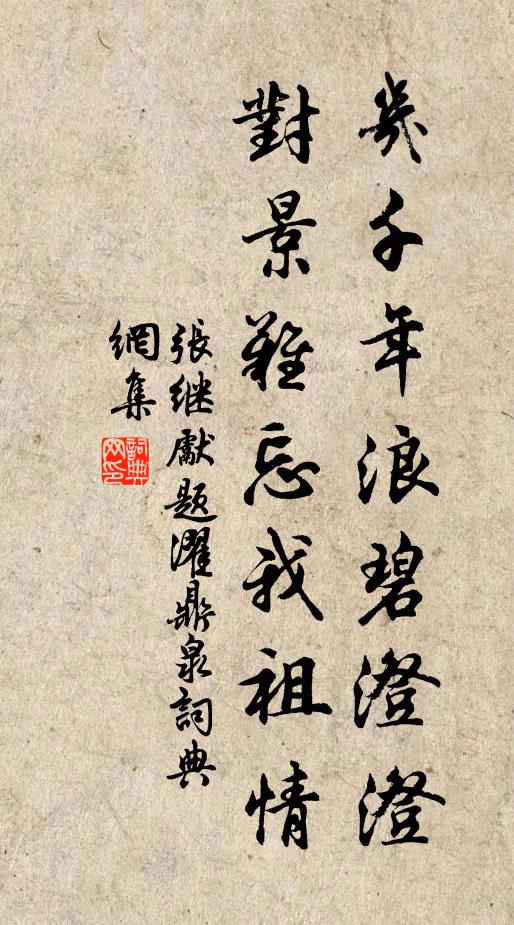 幾千年浪碧澄澄
對景難忘我祖情
張继獻题濯鼎泉詞典
網集
詞典
网印